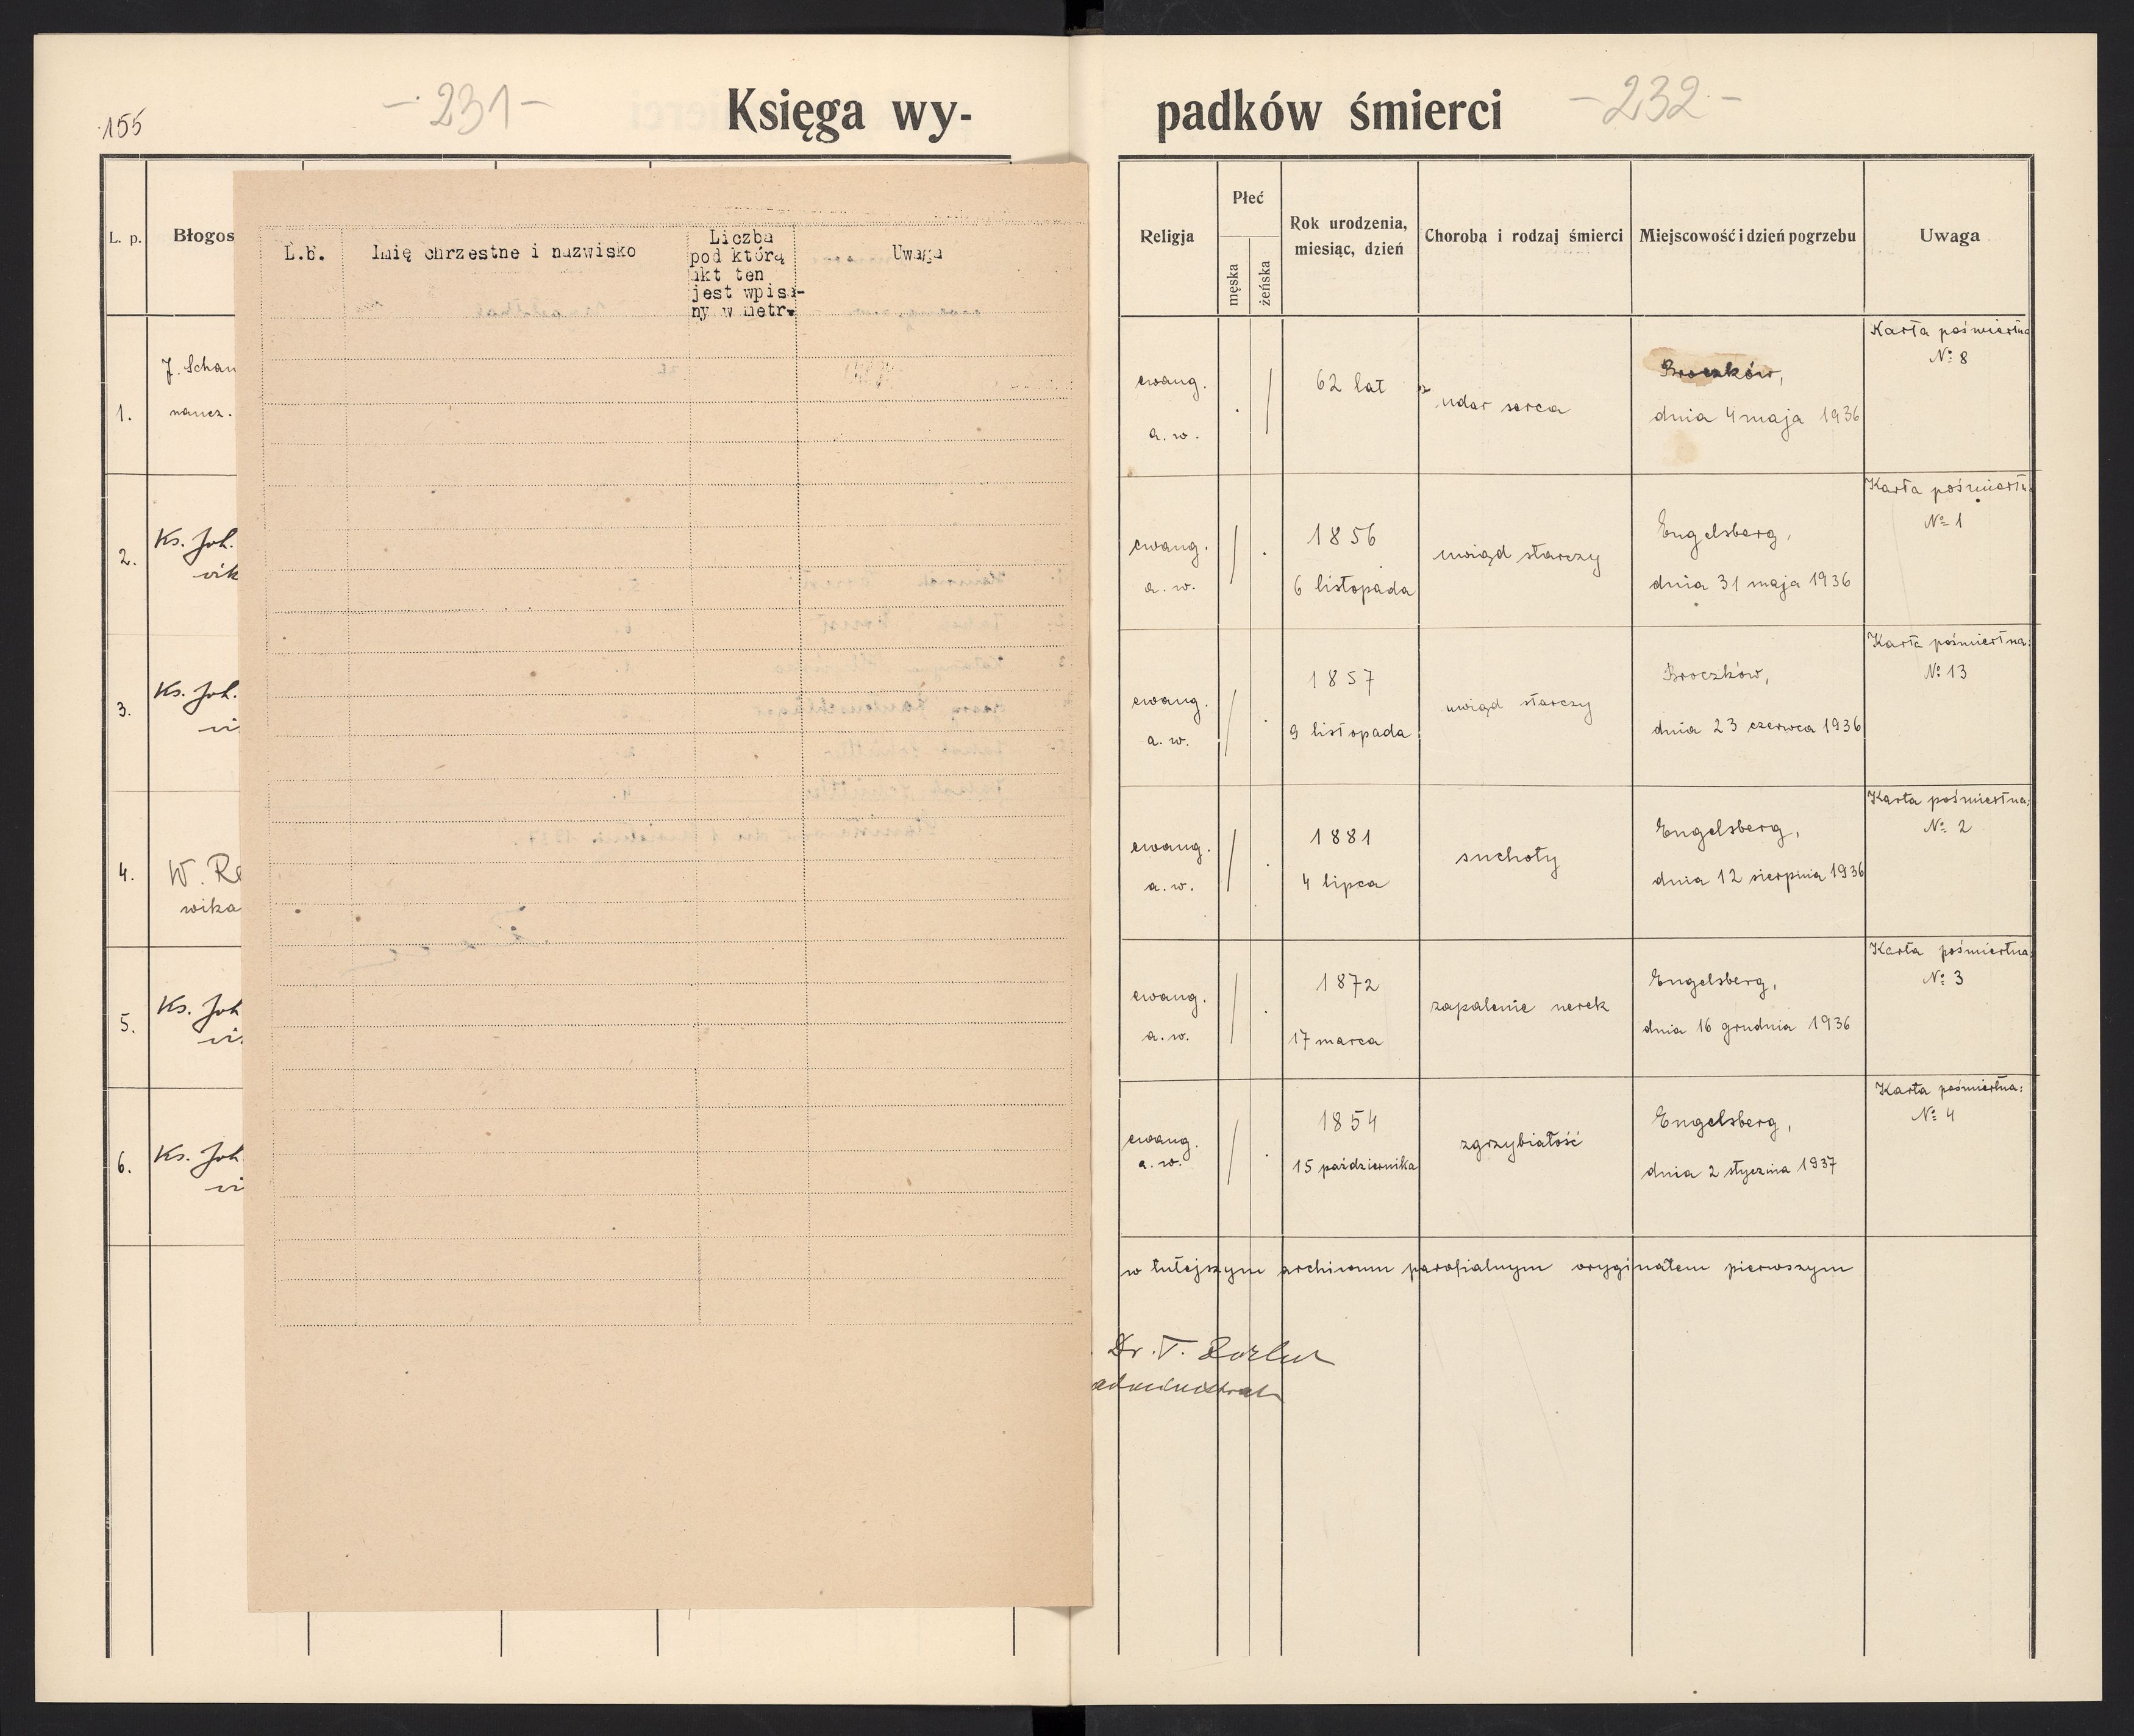 155
- 231 -
Księga wy-
padków śmierci
- 232 -
L. p.
Błogos
L.b.
Imię chrzestne i nazwisko
Liczba
pod którą
akt ten
jest wpisa-
ny w metr.
Uwaga
1.
J. Schan
naucz.
2.
Ks. Joh.
wik
3.
Ks. Joh.
wi
4.
W. Re
wika
5.
Ks. Joh
wi
6.
Ks. Joh
wi
Religja
Płeć
męska
żeńska
Rok urodzenia,
miesiąc, dzień
Choroba i rodzaj śmierci
Miejscowość i dzień pogrzebu
Uwaga
ewang.
a. w.
62 lat
udar serca
Broczków,
dnia 4 maja 1936
Karta pośmiertna
№ 8
ewang.
a. w.
1856
6 listopada
uwiąd starczy
Engelsberg,
dnia 31 maja 1936
Karta pośmiertn
№ 1
ewang.
a. w.
1857
9 listopada
uwiąd starczy
Broczków,
dnia 23 czerwca 1936
Karta pośmiertna:
№ 13
ewang.
a. w.
1881
4 lipca
suchoty
Engelsberg,
dnia 12 sierpnia 1936
Karta pośmiertna:
№ 2
ewang.
a. w.
1872
17 marca
zapalenie nerek
Engelsberg,
dnia 16 grudnia 1936
Karta pośmiertna
№ 3
ewang.
a. w.
1854
15 października
zgrzybiałość
Engelsberg,
dnia 2 stycznia 1937
Karta pośmiertna:
№ 4
w tutejszym archiwum parafialnym oryginałem pierwszym
Dr. T.